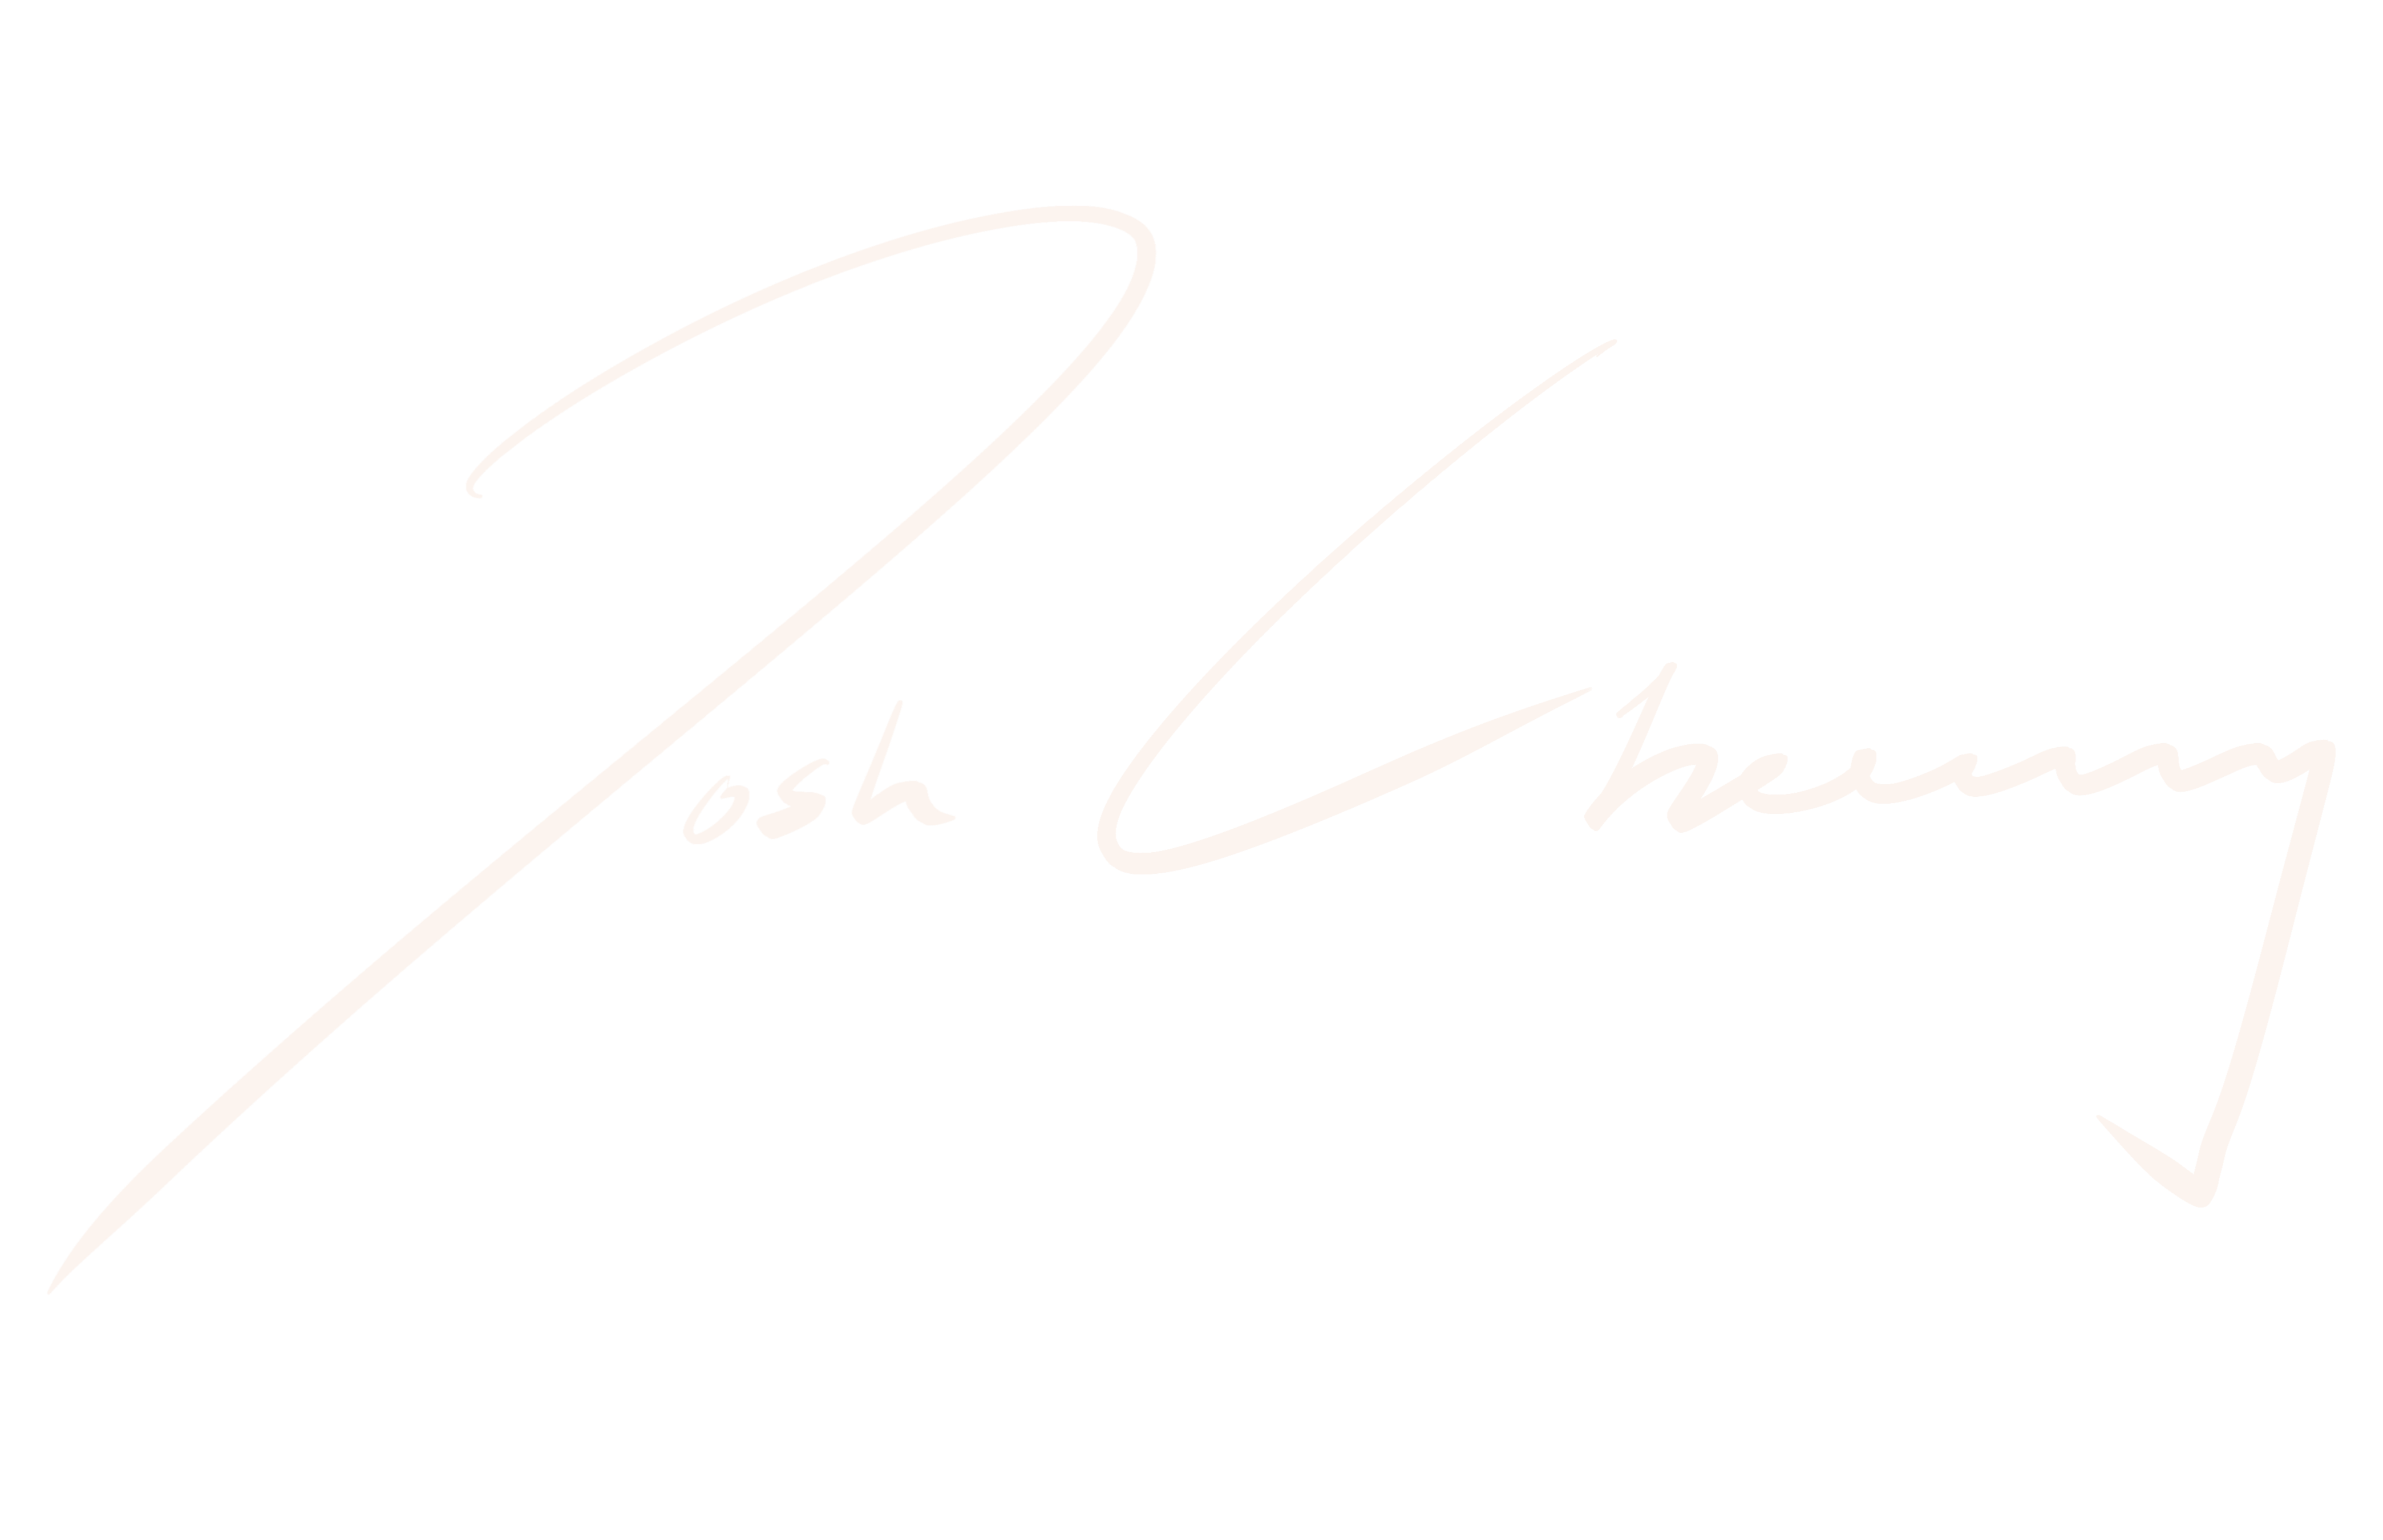 Josh Cheung